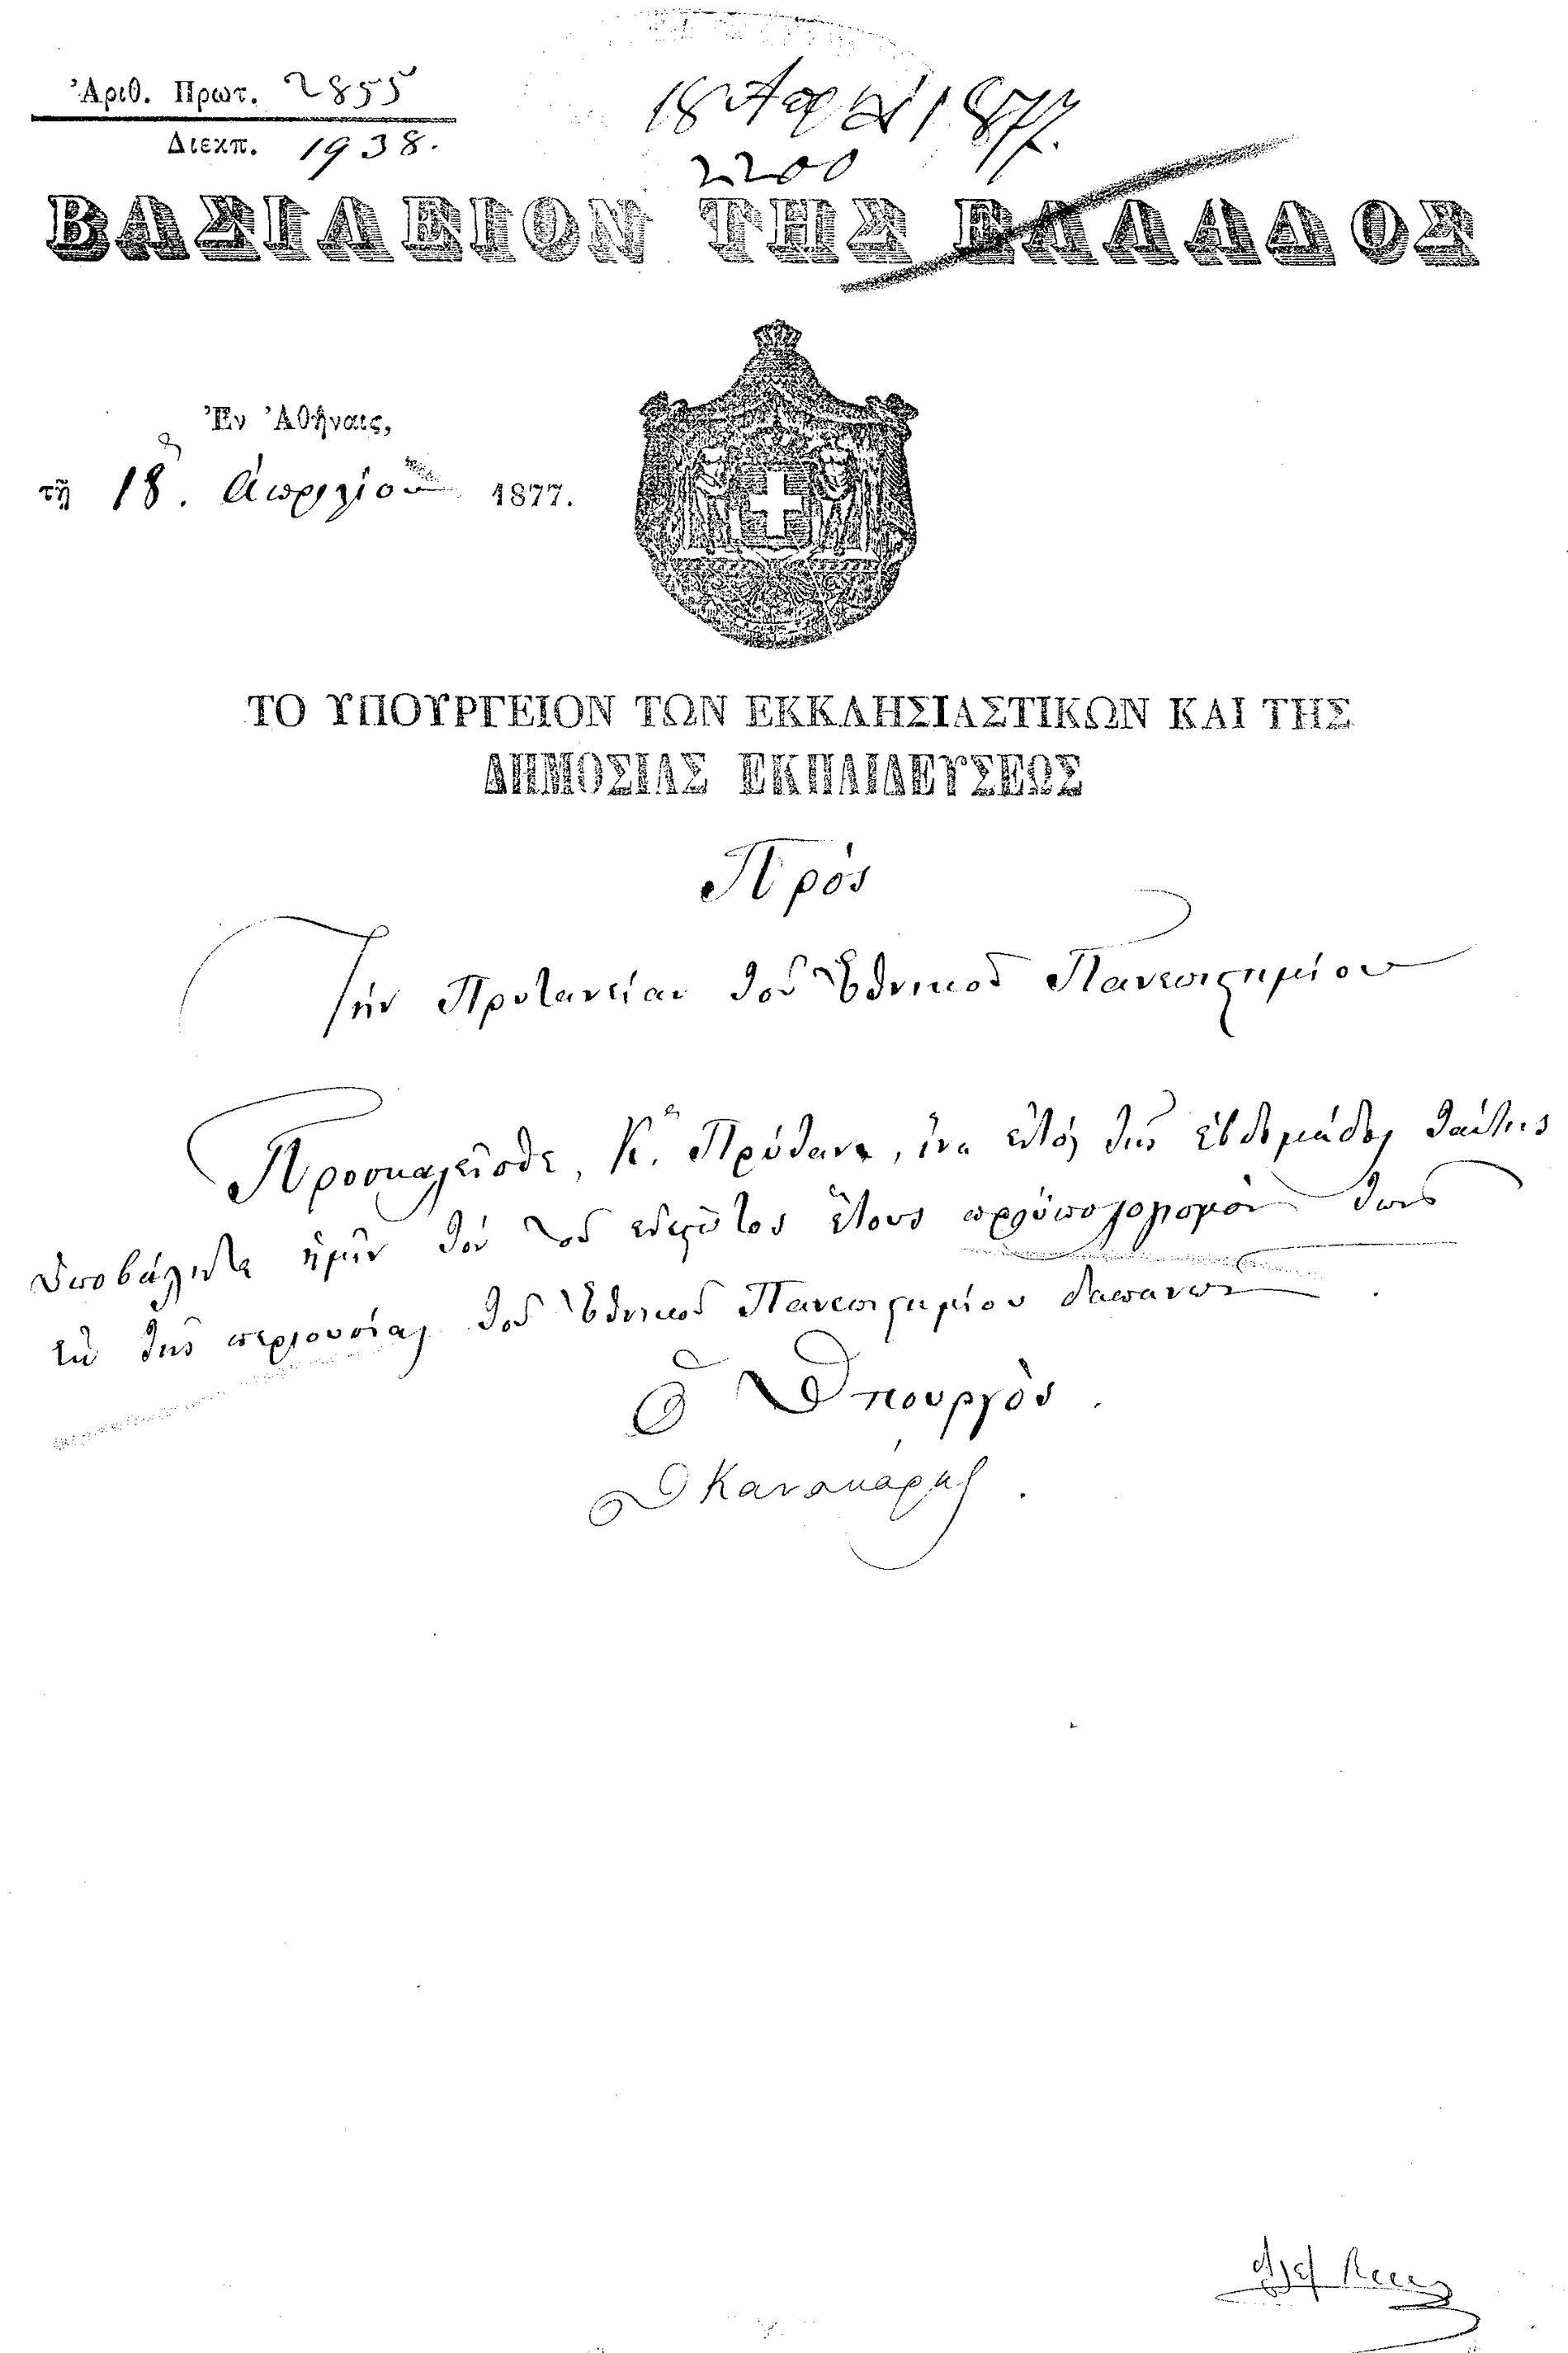 Ἀριθ. Πρωτ. 2855
Διεκπ. 1938.
18 Απρ 1877.
2200
ΒΑΣΙΛΕΙΟΝ ΤΗΣ ΕΛΛΑΔΟΣ
Ἐν Ἀθήναις,
τῇ 18ῃ. ἀπριλίου 1877.
ΤΟ ΥΠΟΥΡΓΕΙΟΝ ΤΩΝ ΕΚΚΛΗΣΙΑΣΤΙΚΩΝ ΚΑΙ ΤΗΣ
ΔΗΜΟΣΙΑΣ ΕΚΠΑΙΔΕΥΣΕΩΣ
Πρὸς
Τὴν Πρυτανείαν τοῦ Ἐθνικοῦ Πανεπιστημίου
Προσκαλεῖσθε, Κε. Πρύτανι, ἵνα ἐντὸς τῆς ἑβδομάδος ταύτης
ὑποβάλητε ἡμῖν τὸν τοῦ ἐνεστῶτος ἔτους προϋπολογισμὸν τῶν
ἐκ τῆς περιουσίας τοῦ Ἐθνικοῦ Πανεπιστημίου δαπανῶν.
Ὁ Ὑπουργὸς.
Κανακάρης.